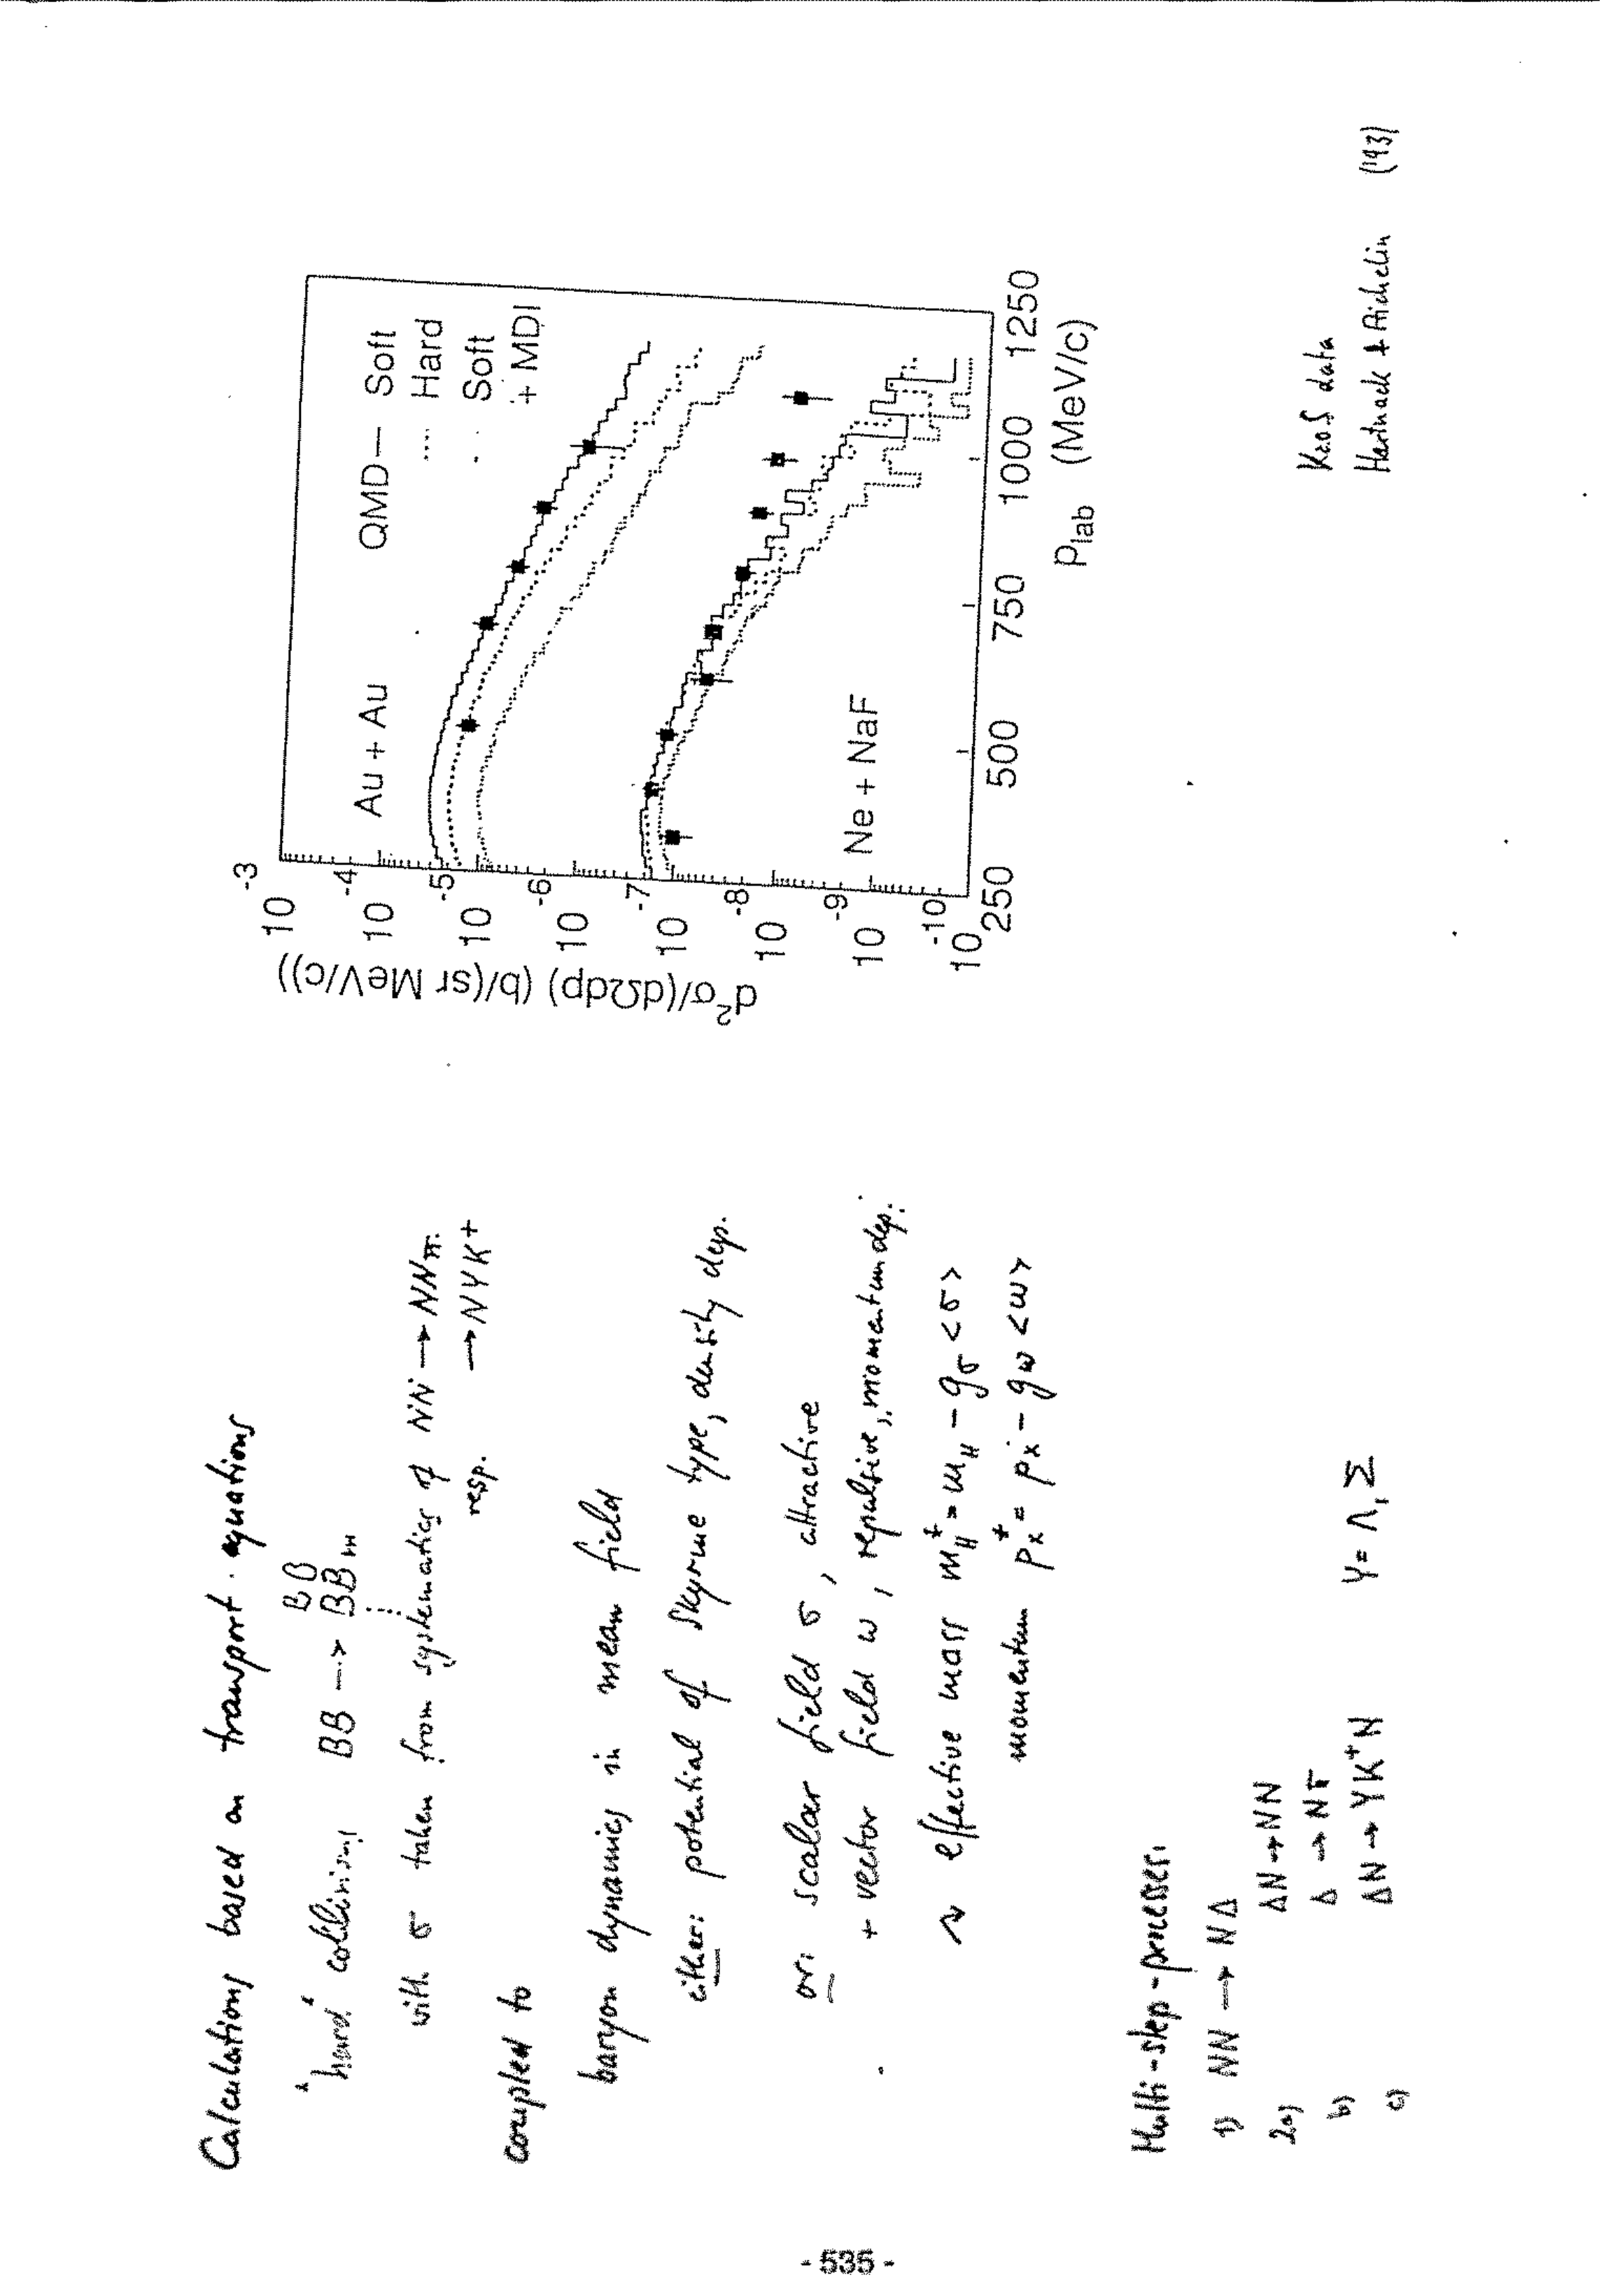 Calculations based on transport equations
"hard" collisions BB --> BB
BBm
with σ taken from systematics of NN → NNπ
resp. → NYK+
coupled to
baryon dynamics in mean field
either: potential of Skyrme type, density dep.
or: scalar field σ, attractive
+ vector field ω, repulsive, momentum dep.
effective mass m_H^* = m_H - g_σ <σ>
momentum p_x^* = p_x - g_ω <ω>
Multi-step-processes:
1) NN → NΔ
2a) ΔN → NN
b) Δ → Nπ
c) ΔN → YK+N Y = Λ, Σ
10^-3
10^-4
10^-5
10^-6
10^-7
10^-8
10^-9
10^-10
d²σ/(dΩdp) (b/(sr MeV/c))
Au + Au
QMD — Soft
Hard
Soft
+ MDI
Ne + NaF
250 500 750 1000 1250
p_lab (MeV/c)
KaoS data
Hartnack & Aichelin ('93)
- 535 -